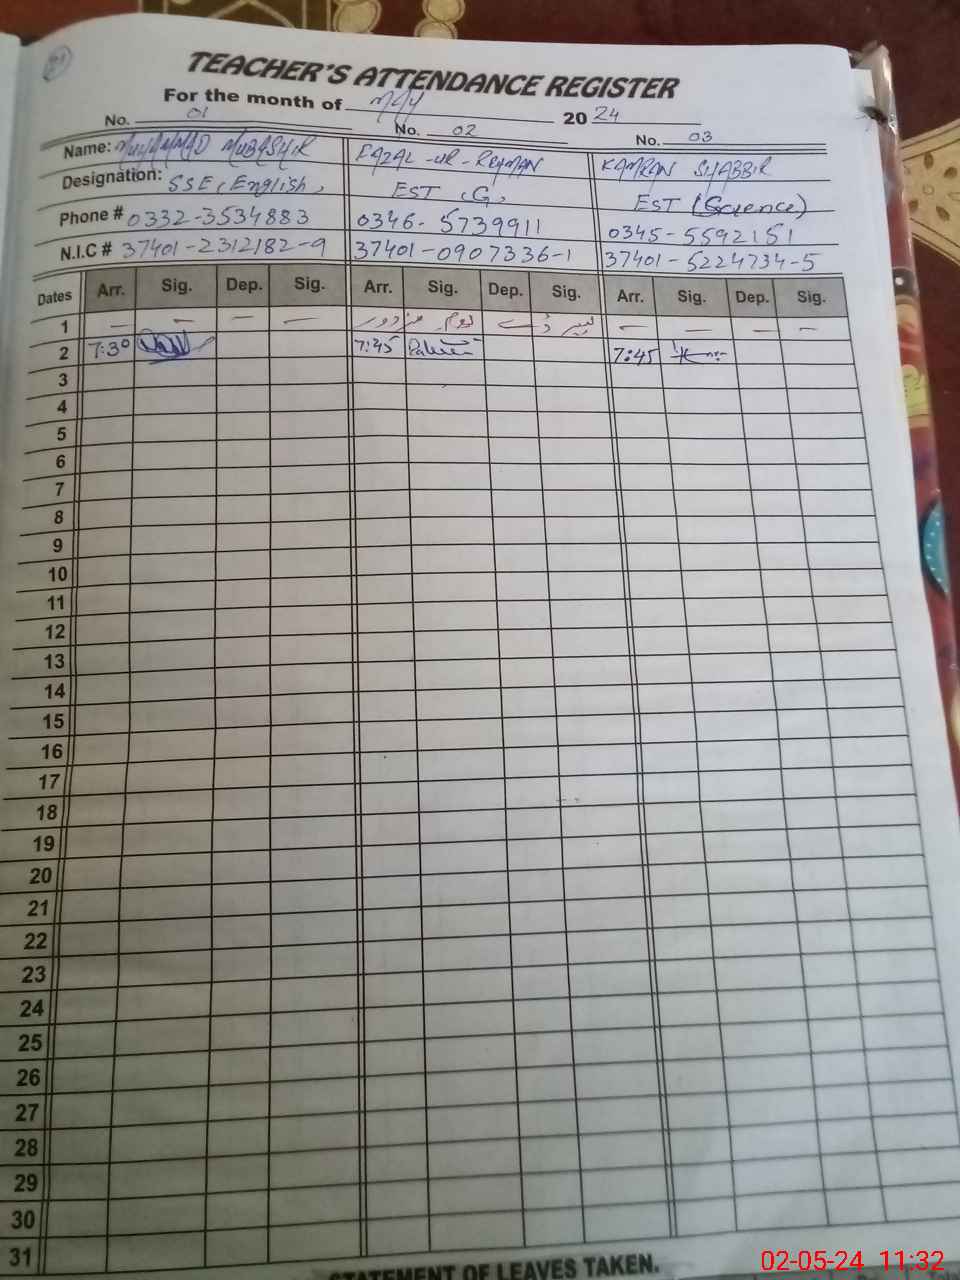 21
TEACHER'S ATTENDANCE REGISTER
For the month of May 2024
No. 01 No. 02 No. 03
Name: MUHAMMAD MUBASHIR FAZAL-UR-REHMAN KAMRAN SHABBIR
Designation: SSE (English) EST (G) EST (Science)
Phone # 0332-3534883 0346-5739911 0345-5592151
N.I.C # 37401-2312182-9 37401-0907336-1 37401-5224734-5
Dates Arr. Sig. Dep. Sig. Arr. Sig. Dep. Sig. Arr. Sig. Dep. Sig.
1 — — — — یوم مزدور لیبر ڈے — — — —
2 7:30 7:45 7:45
3
4
5
6
7
8
9
10
11
12
13
14
15
16
17
18
19
20
21
22
23
24
25
26
27
28
29
30
31
STATEMENT OF LEAVES TAKEN.
02-05-24 11:32